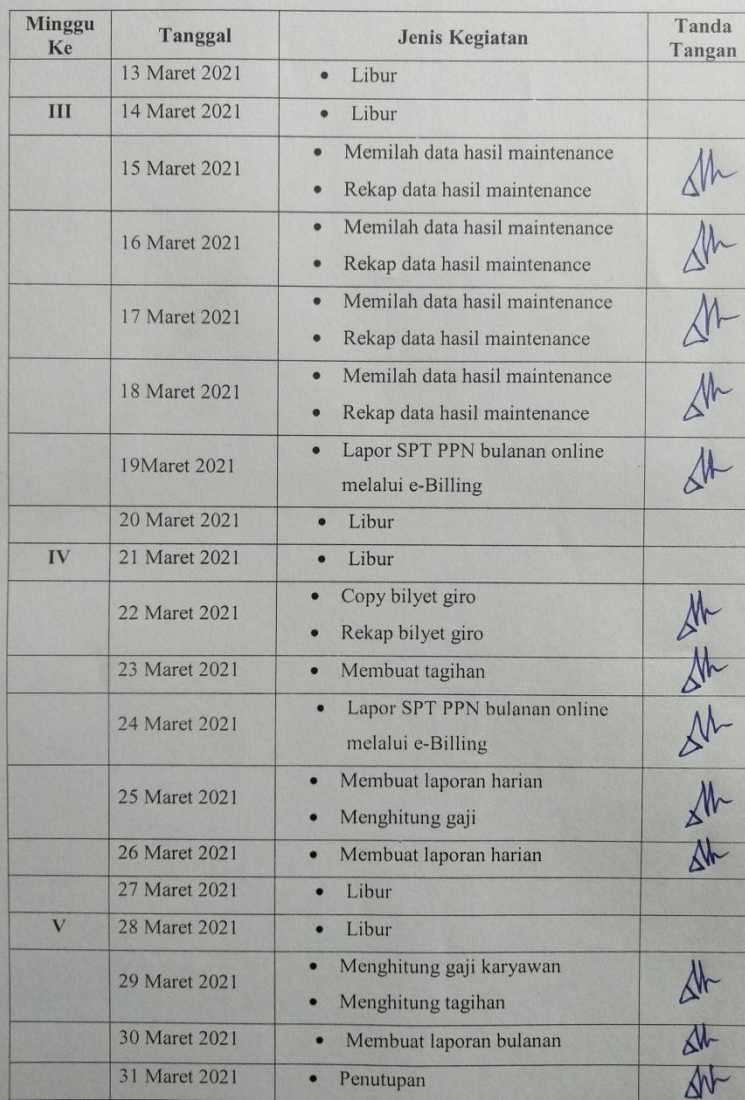 Minggu Ke Tanggal Jenis Kegiatan Tanda Tangan
13 Maret 2021 • Libur
III 14 Maret 2021 • Libur
15 Maret 2021
• Memilah data hasil maintenance
• Rekap data hasil maintenance
16 Maret 2021
• Memilah data hasil maintenance
• Rekap data hasil maintenance
17 Maret 2021
• Memilah data hasil maintenance
• Rekap data hasil maintenance
18 Maret 2021
• Memilah data hasil maintenance
• Rekap data hasil maintenance
19Maret 2021
• Lapor SPT PPN bulanan online
melalui e-Billing
20 Maret 2021 • Libur
IV 21 Maret 2021 • Libur
22 Maret 2021
• Copy bilyet giro
• Rekap bilyet giro
23 Maret 2021 • Membuat tagihan
24 Maret 2021
• Lapor SPT PPN bulanan online
melalui e-Billing
25 Maret 2021
• Membuat laporan harian
• Menghitung gaji
26 Maret 2021 • Membuat laporan harian
27 Maret 2021 • Libur
V 28 Maret 2021 • Libur
29 Maret 2021
• Menghitung gaji karyawan
• Menghitung tagihan
30 Maret 2021 • Membuat laporan bulanan
31 Maret 2021 • Penutupan